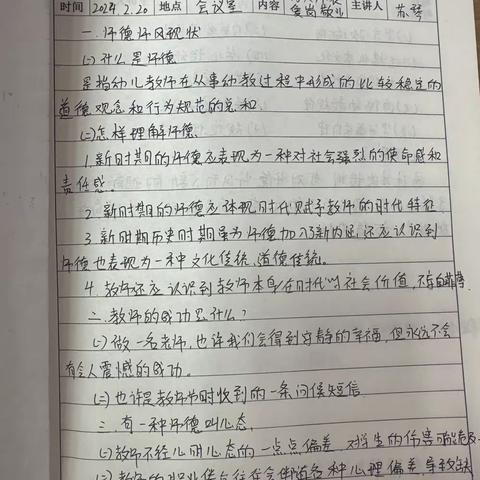 时间 2024.2.20 地点 会议室 内容 爱岗敬业 主讲人 苏琴
一.师德师风现状
(一)什么是师德
是指幼儿教师在从事幼教过程中形成的比较稳定的
道德观念和行为规范的总和.
(二)怎样理解师德.
1.新时期的师德应表现为一种对社会强烈的使命感和
责任感.
2.新时期的师德应体现时代赋予教师的时代特征
3.新时期历史时期虽为师德加入了新内涵,还应认识到
师德也表现为一种文化传统、道德传统。
4.教师还应认识到教师本身在时代的社会价值,不
二.教师的成功是什么?
(一)做一名老师,也许我们会得到宁静的幸福,但永远不会
有令人震憾的成功.
(二)也许是教师节时收到的一条问侯短信
三.有一种师德叫心态.
(一)教师不经心间心态的一点点偏差,对学生的伤害
(二)教师的职业使台往往会伴随各种心理偏差,导致